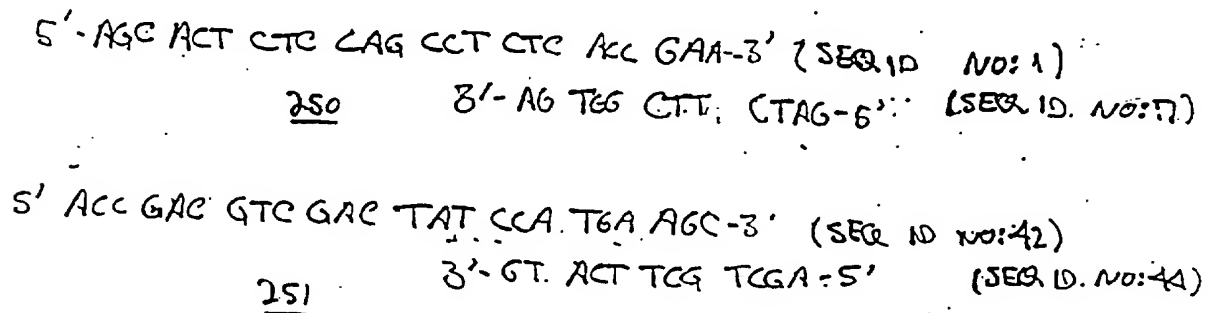 5'-AGC ACT CTC CAG CCT CTC ACC GAA-3' (SEQ ID NO: 1)
250 3'-AG TGG CTT CTAG-5' (SEQ ID. NO:
5' ACC GAC GTC GAC TAT CCA TGA AGC-3' (SEQ ID NO: 42)
251 3'-GT ACT TCG TCGA-5' (SEQ ID. NO: 44)